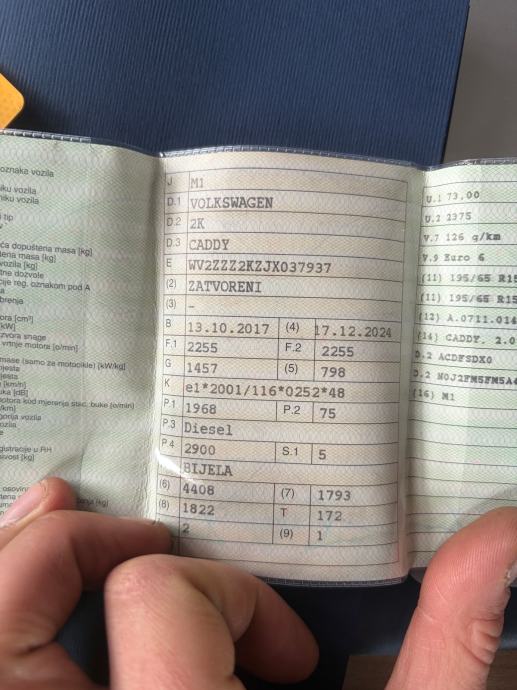 oznaka vozila
niku vozila
niku vozila
tip
ća dopuštena masa [kg]
tena masa [kg]
vozila [kg]
tne dozvole
cije reg. oznakom pod A
brenja
ora [cm³]
kW]
zvora snage
vrtnje motora [o/min]
mase (samo za motocikle) [kW/kg]
jesta
jesta
[km/h]
uke [dB]
otora kod mjerenja stac. buke [o/min]
/km]
orija vozila
ozila
gistracije u RH
sivost [kg]
osovin
J M1
D.1 VOLKSWAGEN
D.2 2K
D.3 CADDY
E WV2ZZZ2KZJX037937
(2) ZATVORENI
(3) –
B 13.10.2017 (4) 17.12.2024
F.1 2255 F.2 2255
G 1457 (5) 798
K e1*2001/116*0252*48
P.1 1968 P.2 75
P.3 Diesel
P.4 2900 S.1 5
BIJELA
(6) 4408 (7) 1793
(8) 1822 T 172
2 (9) 1
U.1 73,00
U.2 2375
V.7 126 g/km
V.9 Euro 6
(11) 195/65 R15
(11) 195/65 R15
(12) A.0711.014
(14) CADDY. 2.0
D.2 ACDFSDX0
D.2 N0J2FM5FM5A4
(16) M1